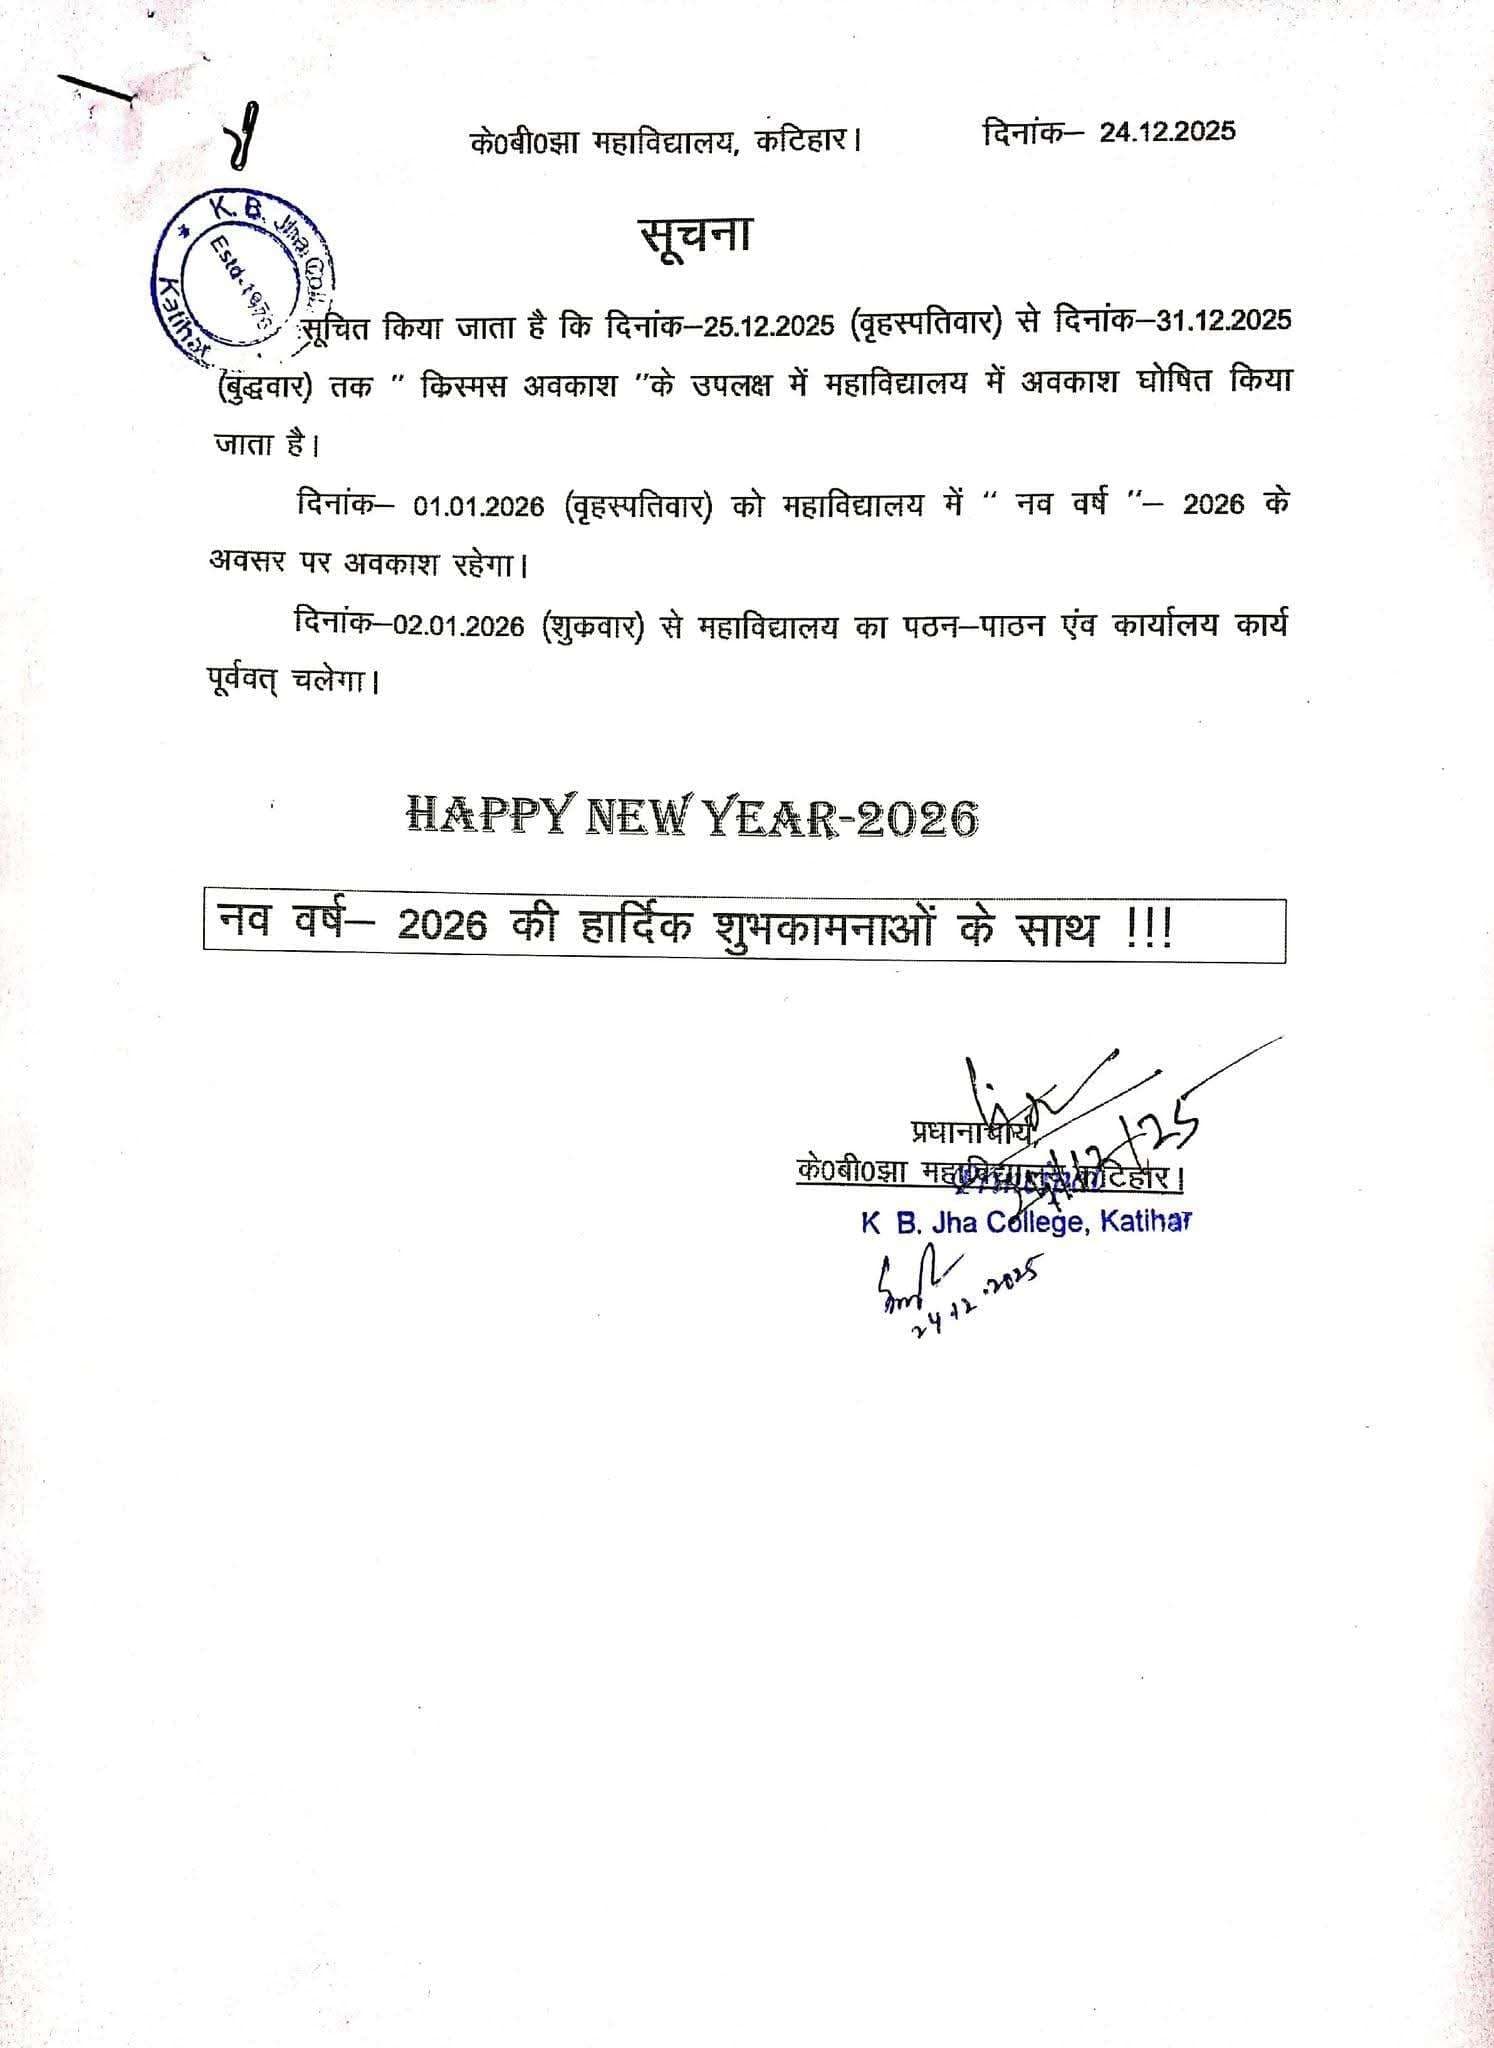 के0बी0झा महाविद्यालय, कटिहार। दिनांक– 24.12.2025
सूचना
K. B. Jha Coll.
Katihar
Estd-1976
सूचित किया जाता है कि दिनांक–25.12.2025 (वृहस्पतिवार) से दिनांक–31.12.2025
(बुद्धवार) तक " किस्मस अवकाश "के उपलक्ष में महाविद्यालय में अवकाश घोषित किया
जाता है।
दिनांक– 01.01.2026 (वृहस्पतिवार) को महाविद्यालय में " नव वर्ष "– 2026 के
अवसर पर अवकाश रहेगा।
दिनांक–02.01.2026 (शुकवार) से महाविद्यालय का पठन–पाठन एंव कार्यालय कार्य
पूर्ववत् चलेगा।
HAPPY NEW YEAR-2026
नव वर्ष– 2026 की हार्दिक शुभकामनाओं के साथ !!!
प्रधानाचार्य,
के0बी0झा महाविद्यालय, कटिहार।
K B. Jha College, Katihar
24.12.2025